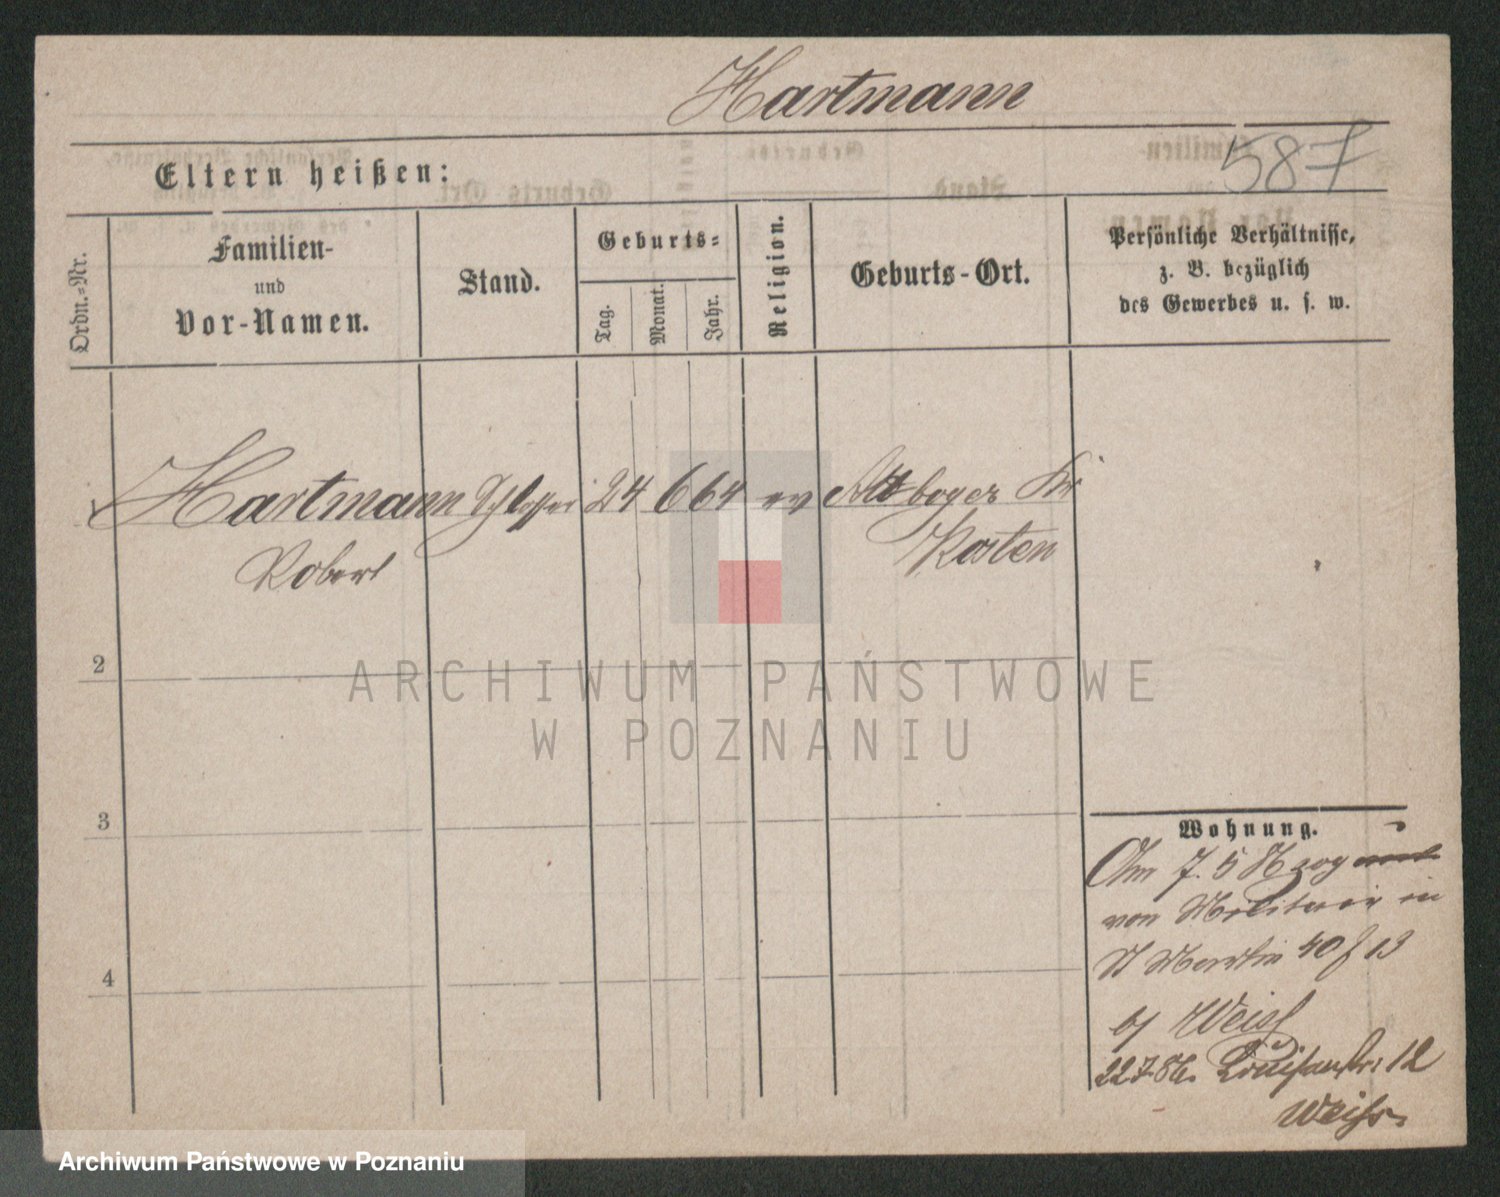 Hartmann
587
Eltern heißen:
Ordn.-Nr.
Familien-
und
Vor-Namen.
Stand.
Geburts-
Tag.
Monat.
Jahr.
Religion.
Geburts-Ort.
Persönliche Verhältnisse,
z. B. bezüglich
des Gewerbes u. s. w.
Hartmann Schlosser 24 6 64 ev Alt Kr
Robert Kosten
2
3
4
ARCHIWUM PAŃSTWOWE
W POZNANIU
Wohnung.
7. 5
von Militair in
St Martin 40 f 13
b/ Weiss
22.7.86. Louisenstr. 12
Weiss.
Archiwum Państwowe w Poznaniu